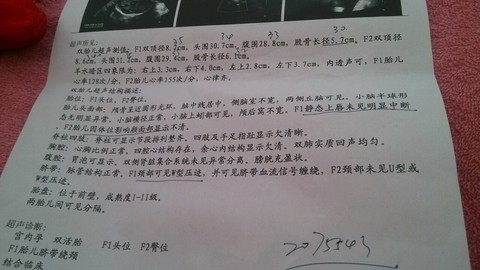 35 34 33 30
超声所见:
双胎儿超声测值:F1双顶径8.7cm,头围30.7cm,腹围28.8cm,股骨长径5.7cm,F2双顶径
8.6cm,头围31.2cm,腹围29.4cm,股骨长6.1cm,
羊水暗区四象限为:右上3.3cm,右下4.0cm,左上2.8cm,左下3.7cm,内透声可,F1胎儿
心率128次/分,F2胎儿心率155次/分,心律齐。
双胎儿超声结构描述:
胎位:F1头位,F2臀位。
胎儿头面部:颅骨呈近圆形光环,脑中线居中,侧脑室不宽,两侧丘脑可见,小脑半球形
态无明显异常,小脑横径正常,小脑上蚓部可见,颅后窝不宽。F1静态上唇未见明显中断
,F2胎儿因体位影响颜面部显示不清。
脊柱四肢:脊柱可显示节段排列整齐,四肢及手足指趾显示欠清晰。
胸腔:心胸比例正常,四腔心结构存在,余心内结构显示欠清,双肺实质回声均匀。
腹腔:胃泡可显示,双侧肾脏集合系统未见异常分离。膀胱充盈状。
脐带:脉管结构正常,F1颈部可见W型压迹,并可见脐带血流信号缠绕,F2颈部未见U型或
W型压迹。
胎盘:位于前壁,成熟度I-II级。
两胎儿间可见分隔。
超声诊断:
宫内孕 双活胎 F1头位 F2臀位
F1胎儿脐带绕颈
结合临床
2075543